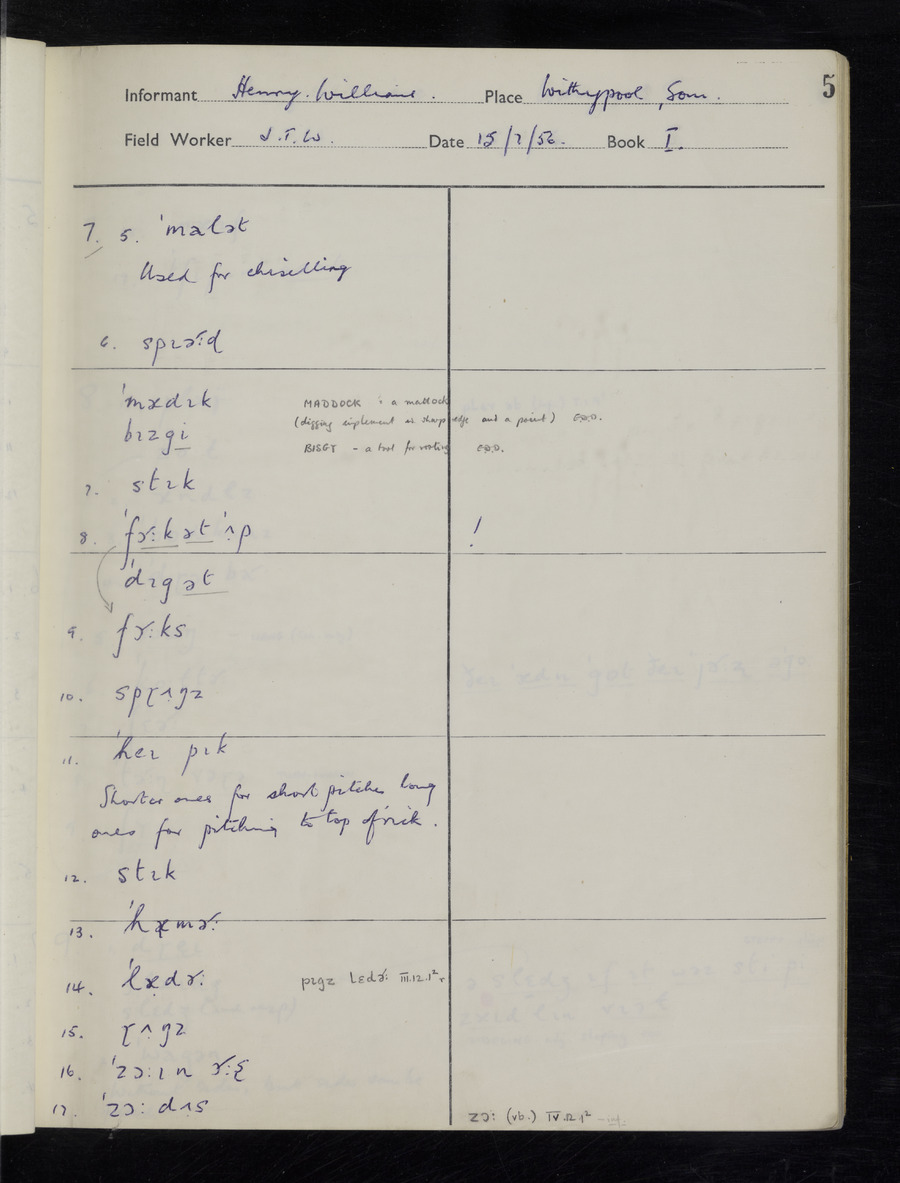 5
Informant Henry. Williams. Place Withypool, Som.
Field Worker J.T.W. Date 15/7/56. Book I.
7. 5. ˈmalət
Used for chiselling
6. spɹəːd
ˈmædɪk MADDOCK : a mattock
(digging implement w. sharp edge and a point) E.D.D.
bɪzgi BISGY - a tool for rooting E.D.D.
7. stɪk
8. ˈfɔ˞ːk ət ˈʌp !
ˈdɪg ət
9. fɔ˞ːks
10. spɽʌgz
11. ˈheɪ pɪk
Shorter ones for short pitches long
ones for pitching to top of rick.
12. stɪk
13. ˈhæmɚː
14. ˈlædɚː pɪgz lɛdɚː III.12.1²
15. ɽʌgz
16. ˈzɔːɪn
17. ˈzɔː dʌs zɔː (vb.) IV.12.1²